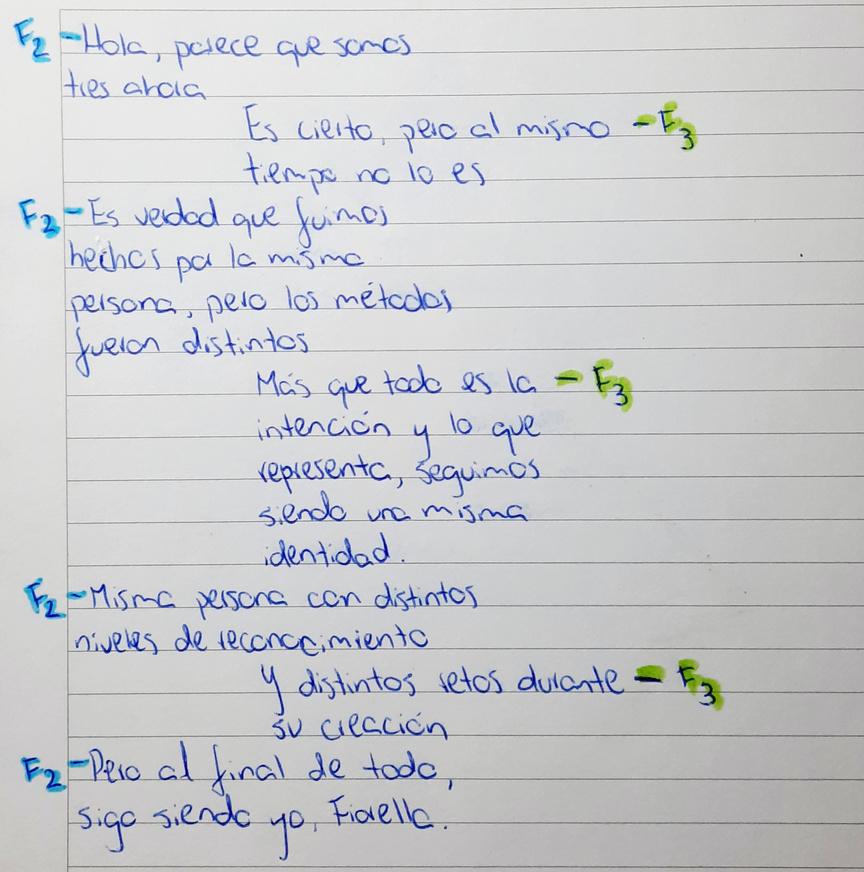 F2 - Hola, parece que somos
tres ahora
Es cierto, pero al mismo - F3
tiempo no lo es
F2 - Es verdad que fuimos
hechos por la misma
persona, pero los métodos
fueron distintos
Más que todo es la - F3
intención y lo que
representa, seguimos
siendo una misma
identidad.
F2 - Misma persona con distintos
niveles de reconocimiento
Y distintos retos durante - F3
su creación
F2 - Pero al final de todo,
sigo siendo yo, Fiorella.